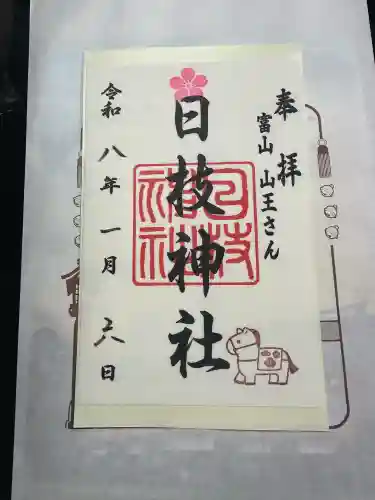 奉拝
富山 山王さん
日枝神社
日枝神社
令和八年一月六日